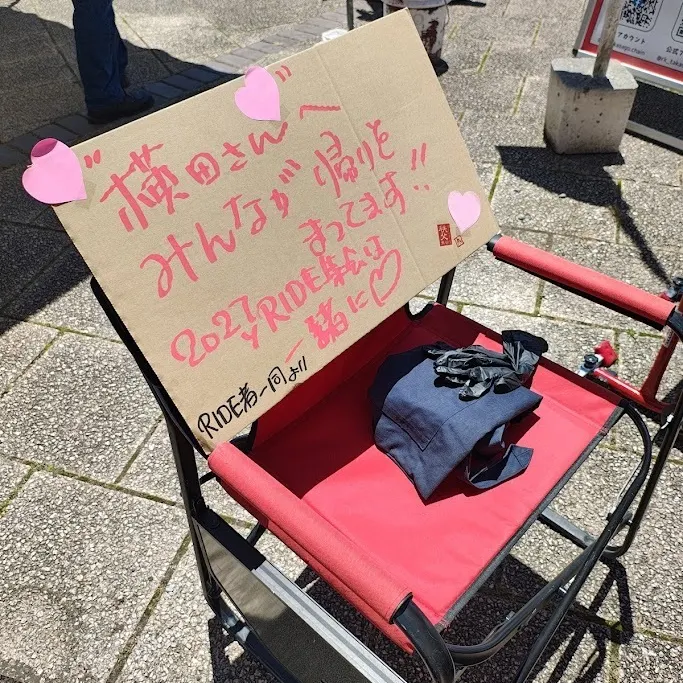 "横田さんへ"
みんなが帰りを
まってます!!
2027 yRIDE集会は
一緒に♡
RIDE者一同より
アカウント
公式ア